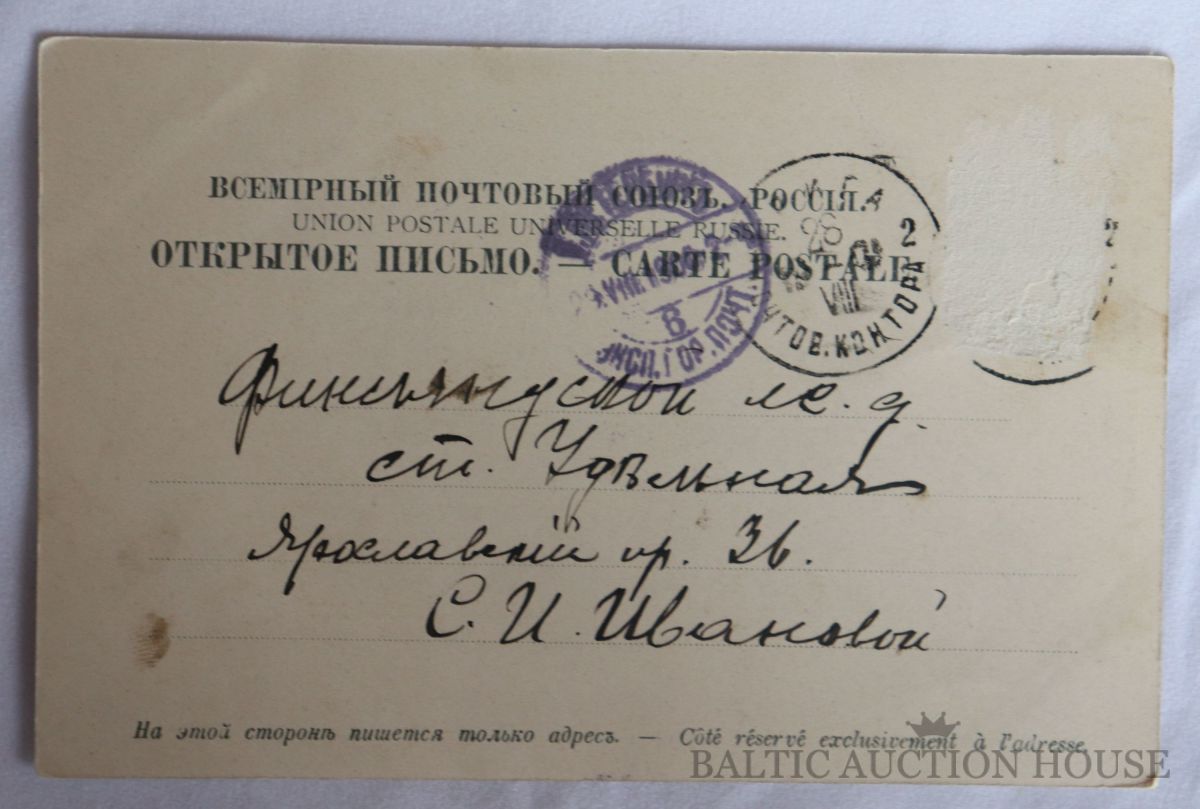 ВСЕМІРНЫЙ ПОЧТОВЫЙ СОЮЗЪ. РОССІЯ.
UNION POSTALE UNIVERSELLE RUSSIE.
ОТКРЫТОЕ ПИСЬМО. — CARTE POSTALE.
2
26
VIII
ПОЧТОВ. КОНТОРА
VIII
6
ЭКСП. ГОР. ПОЧТ.
ж. д.
ст. Удѣльная
Ярославскій пр. 36.
С. И. Ивановой
На этой сторонѣ пишется только адресъ. — Côté réservé exclusivement à l'adresse.
BALTIC AUCTION HOUSE